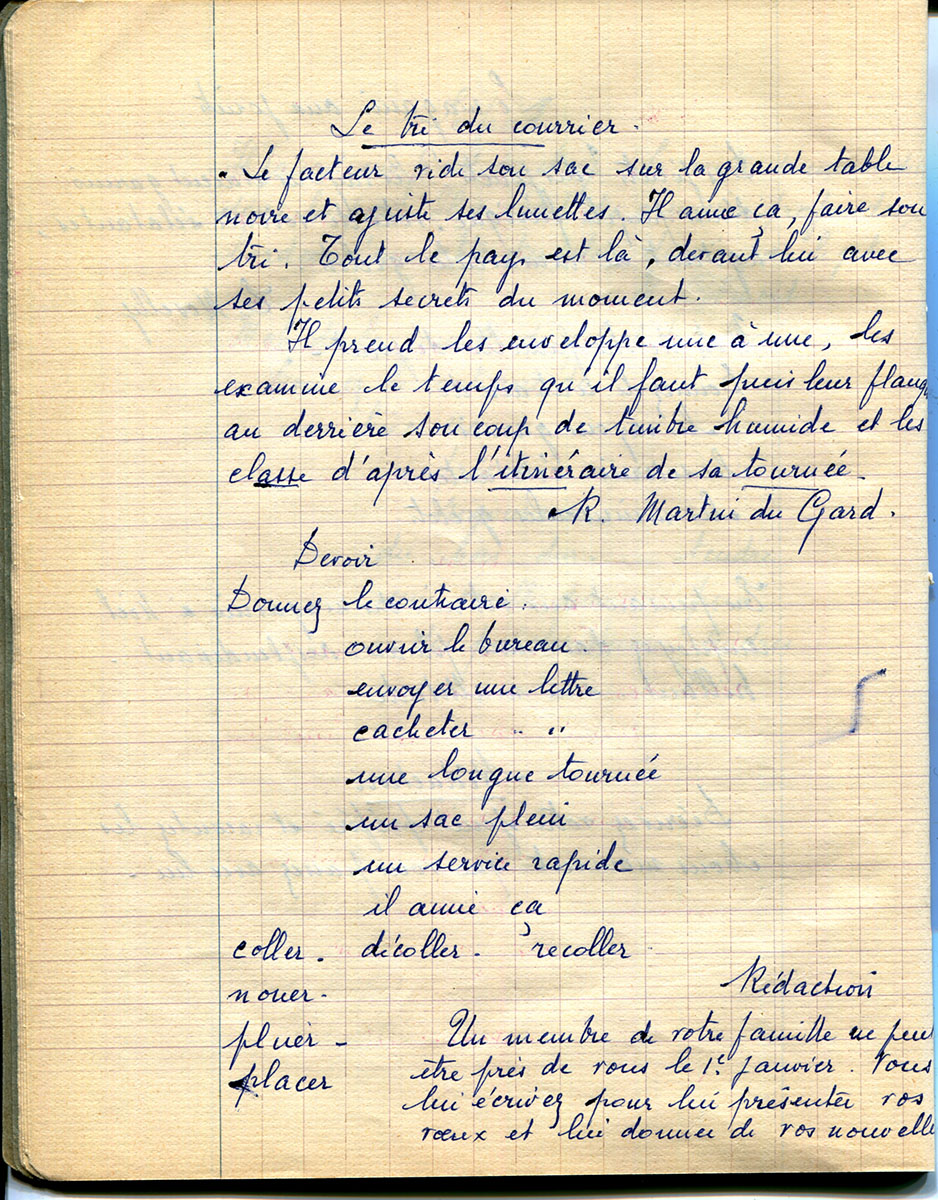 Le tri du courrier.
Le facteur vide son sac sur la grande table
noire et ajuste ses lunettes. Il aime ça, faire son
tri. Tout le pays est là, devant lui avec
ses petits secrets du moment.
Il prend les enveloppe une à une, les
examine le temps qu'il faut puis leur flanqu
au derrière son coup de timbre humide et les
classe d'après l'itinéraire de sa tournée.
R. Martin du Gard.
Devoir
Donnez le contraire :
ouvrir le bureau
envoyer une lettre
cacheter " "
une longue tournée
un sac plein
un service rapide
il aime ça
coller - décoller - recoller
nouer -
Rédaction
plier -
placer
Un membre de votre famille ne peut
être près de vous le 1er Janvier. Vous
lui écrivez pour lui présenter vos
vœux et lui donner de vos nouvelle